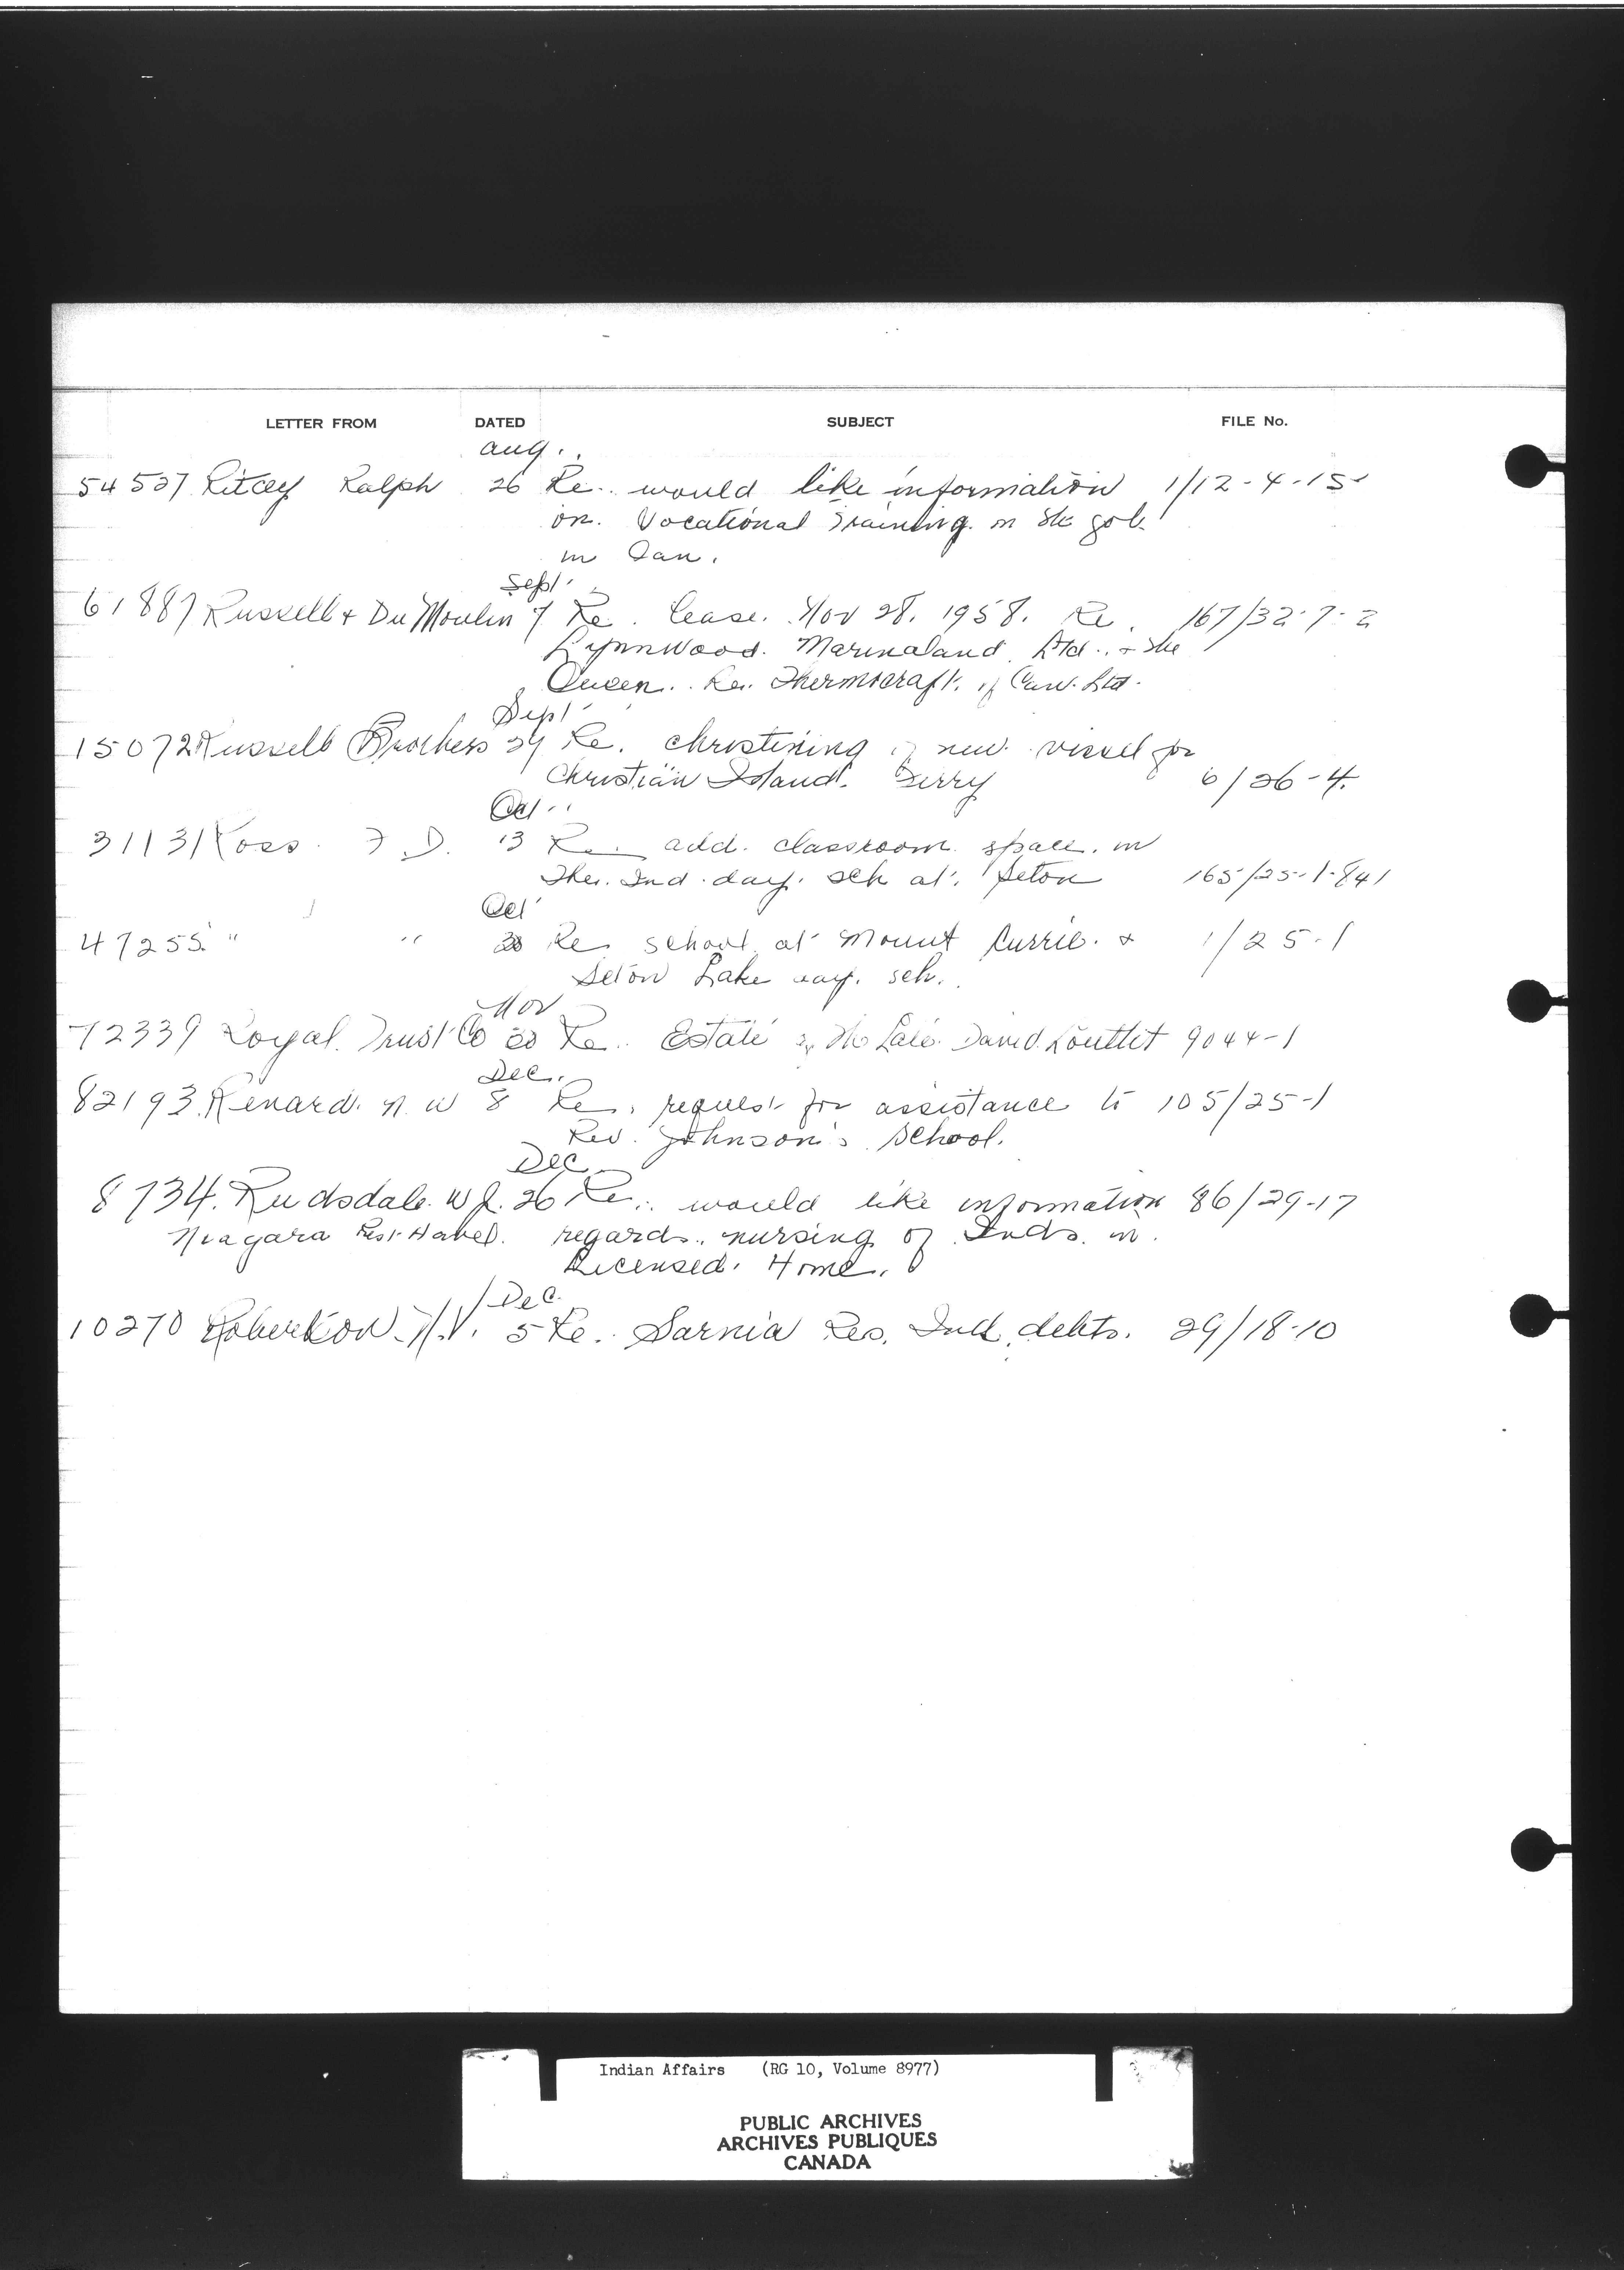 LETTER FROM DATED SUBJECT FILE No.
Aug.
54527 Ritcey Ralph 26 Re. would like information 1/12-4-15-
on. Vocational Training. in
in Can.
Sept
61887 Russell & Du Moulin 7 Re. lease. Nov 28. 1958. Re. 167/32-7-2
Lynnwood. Marinaland. Ltd. & the
Queen. Re. Thermocraft. of Can. Ltd.
Sept
15072 Russell Brothers 24 Re. christining of new vessel for
Christian Island. Ferry 6/26-4.
Oct
31131 Ross. F. D. 13 Re. add. classroom. space. in
the. Ind. day. sch at. Seton 165/25-1-841
Oct
47255. " " Re. school. at Mount Currie. & 1/25-1
Seton Lake day. sch.
Nov
72339 Royal. Trust Co 20 Re. Estate of the Late. David. Louttit 9044-1
Dec.
82193. Renard. N. W 8 Re. request for assistance to 105/25-1
Rev. Johnson's school.
Dec
8734. Rudsdale. W J. 26 Re. would like information 86/29-17
Niagara Rest-Haven. regards. nursing of Inds. in.
Licensed. Home.
Dec.
10270 Robertson. N.V. 5 Re. Sarnia Res. Ind. debts. 29/18-10
Indian Affairs (RG 10, Volume 8977)
PUBLIC ARCHIVES
ARCHIVES PUBLIQUES
CANADA